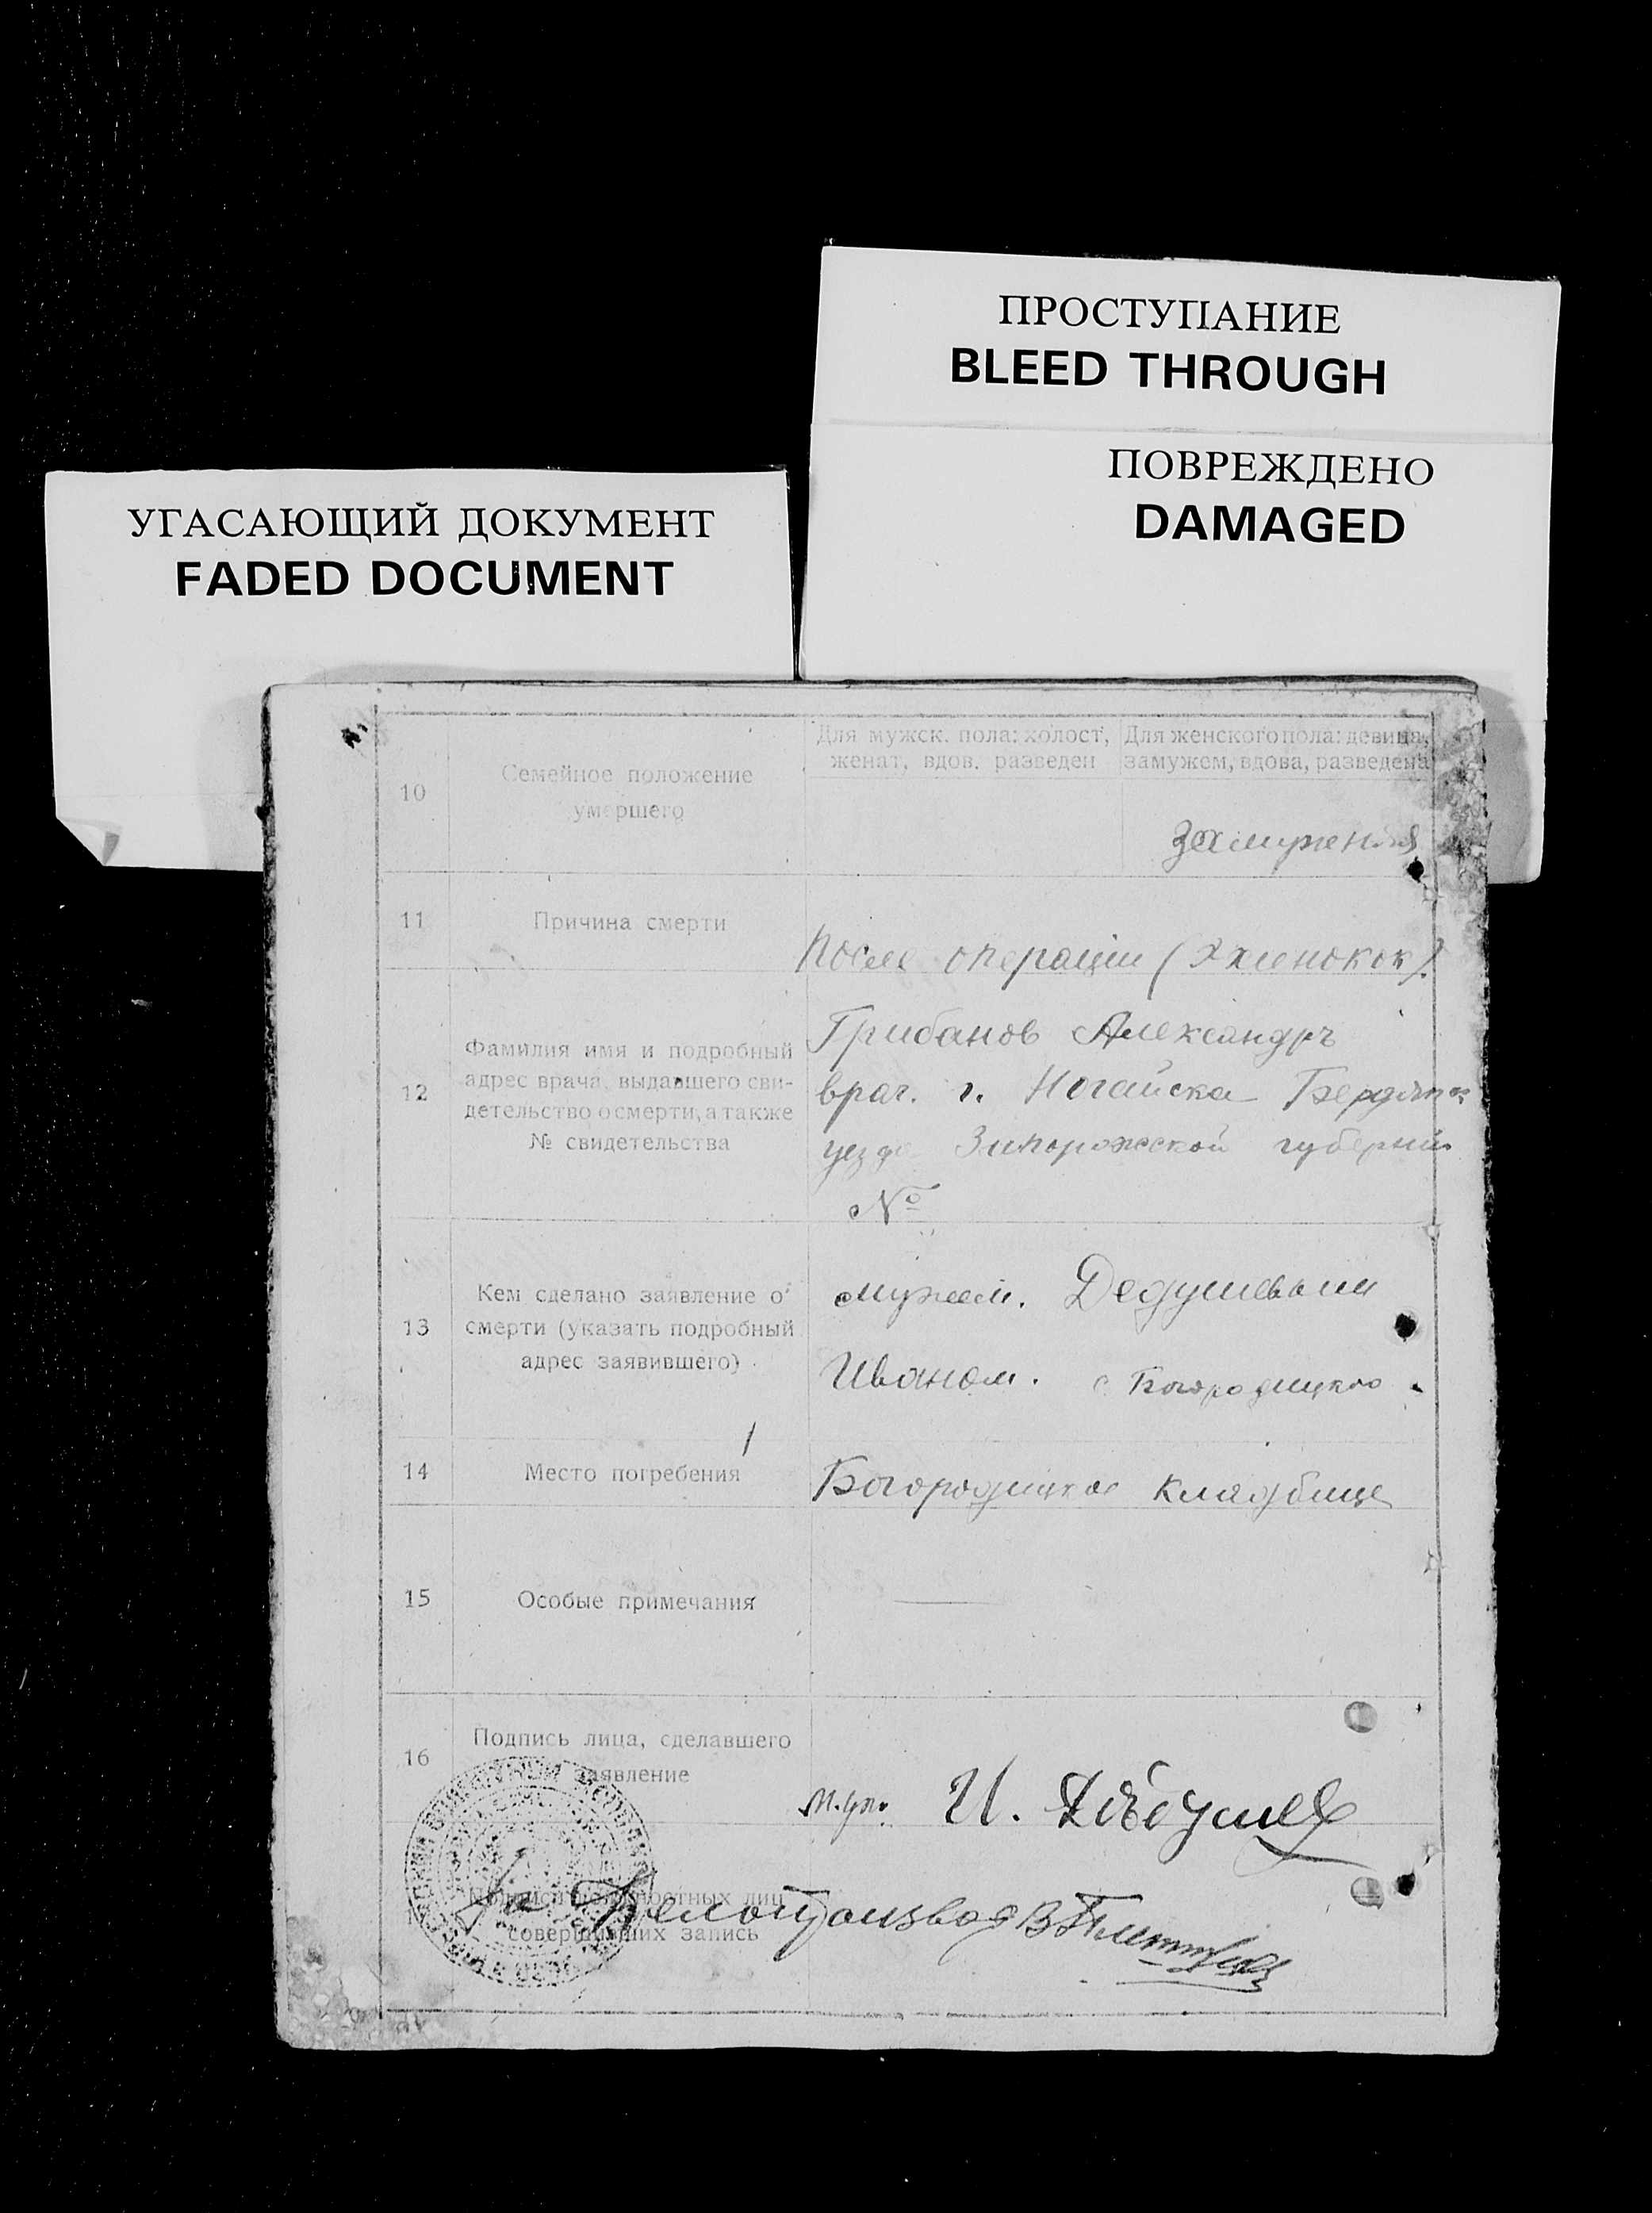 ПРОСТУПАНИЕ
BLEED THROUGH
ПОВРЕЖДЕНО
DAMAGED
УГАСАЮЩИЙ ДОКУМЕНТ
FADED DOCUMENT
10
Семейное положение
умершего
Для мужск. пола: холост,
женат, вдов, разведен
Для женского пола: девица,
замужем, вдова, разведена
Замужняя
11
Причина смерти
После операции (Эхинокок)
12
Фамилия имя и подробный
адрес врача, выдавшего сви-
детельство о смерти, а также
№ свидетельства
Грибанов Александръ
врач. г. Ногайска Бердянск
уезда Запорожской губернии
№
13
Кем сделано заявление о
смерти (указать подробный
адрес заявившего)
мужем. Дедушевым
Иваном. с. Богородицкого
14
Место погребения
Богородицкое кладбище
15
Особые примечания
16
Подпись лица, сделавшего
заявление
И. Дѣдушев
Подписи должностных лиц
совершивших запись
За Делопроизвод